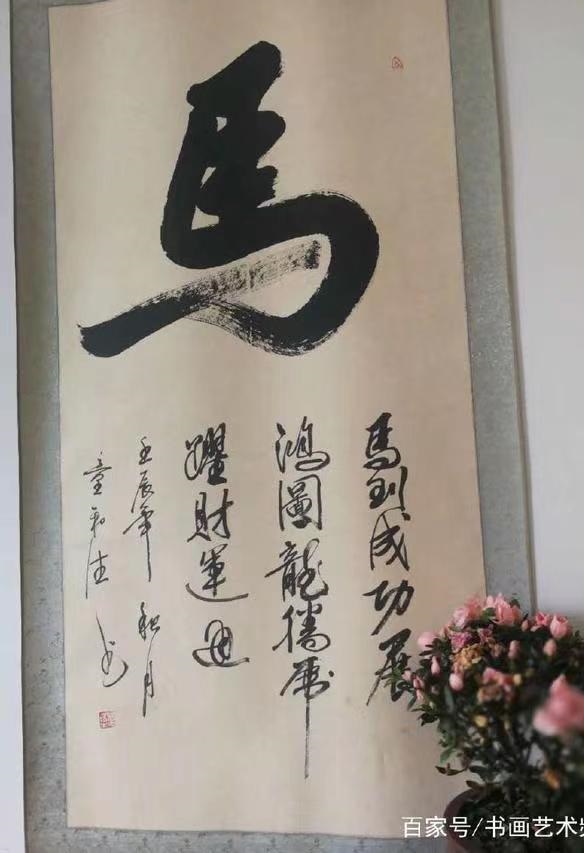 馬
馬到成功展
鴻圖龍騰虎
躍財運通
壬辰年秋月
童和法书
百家号/书画艺术频